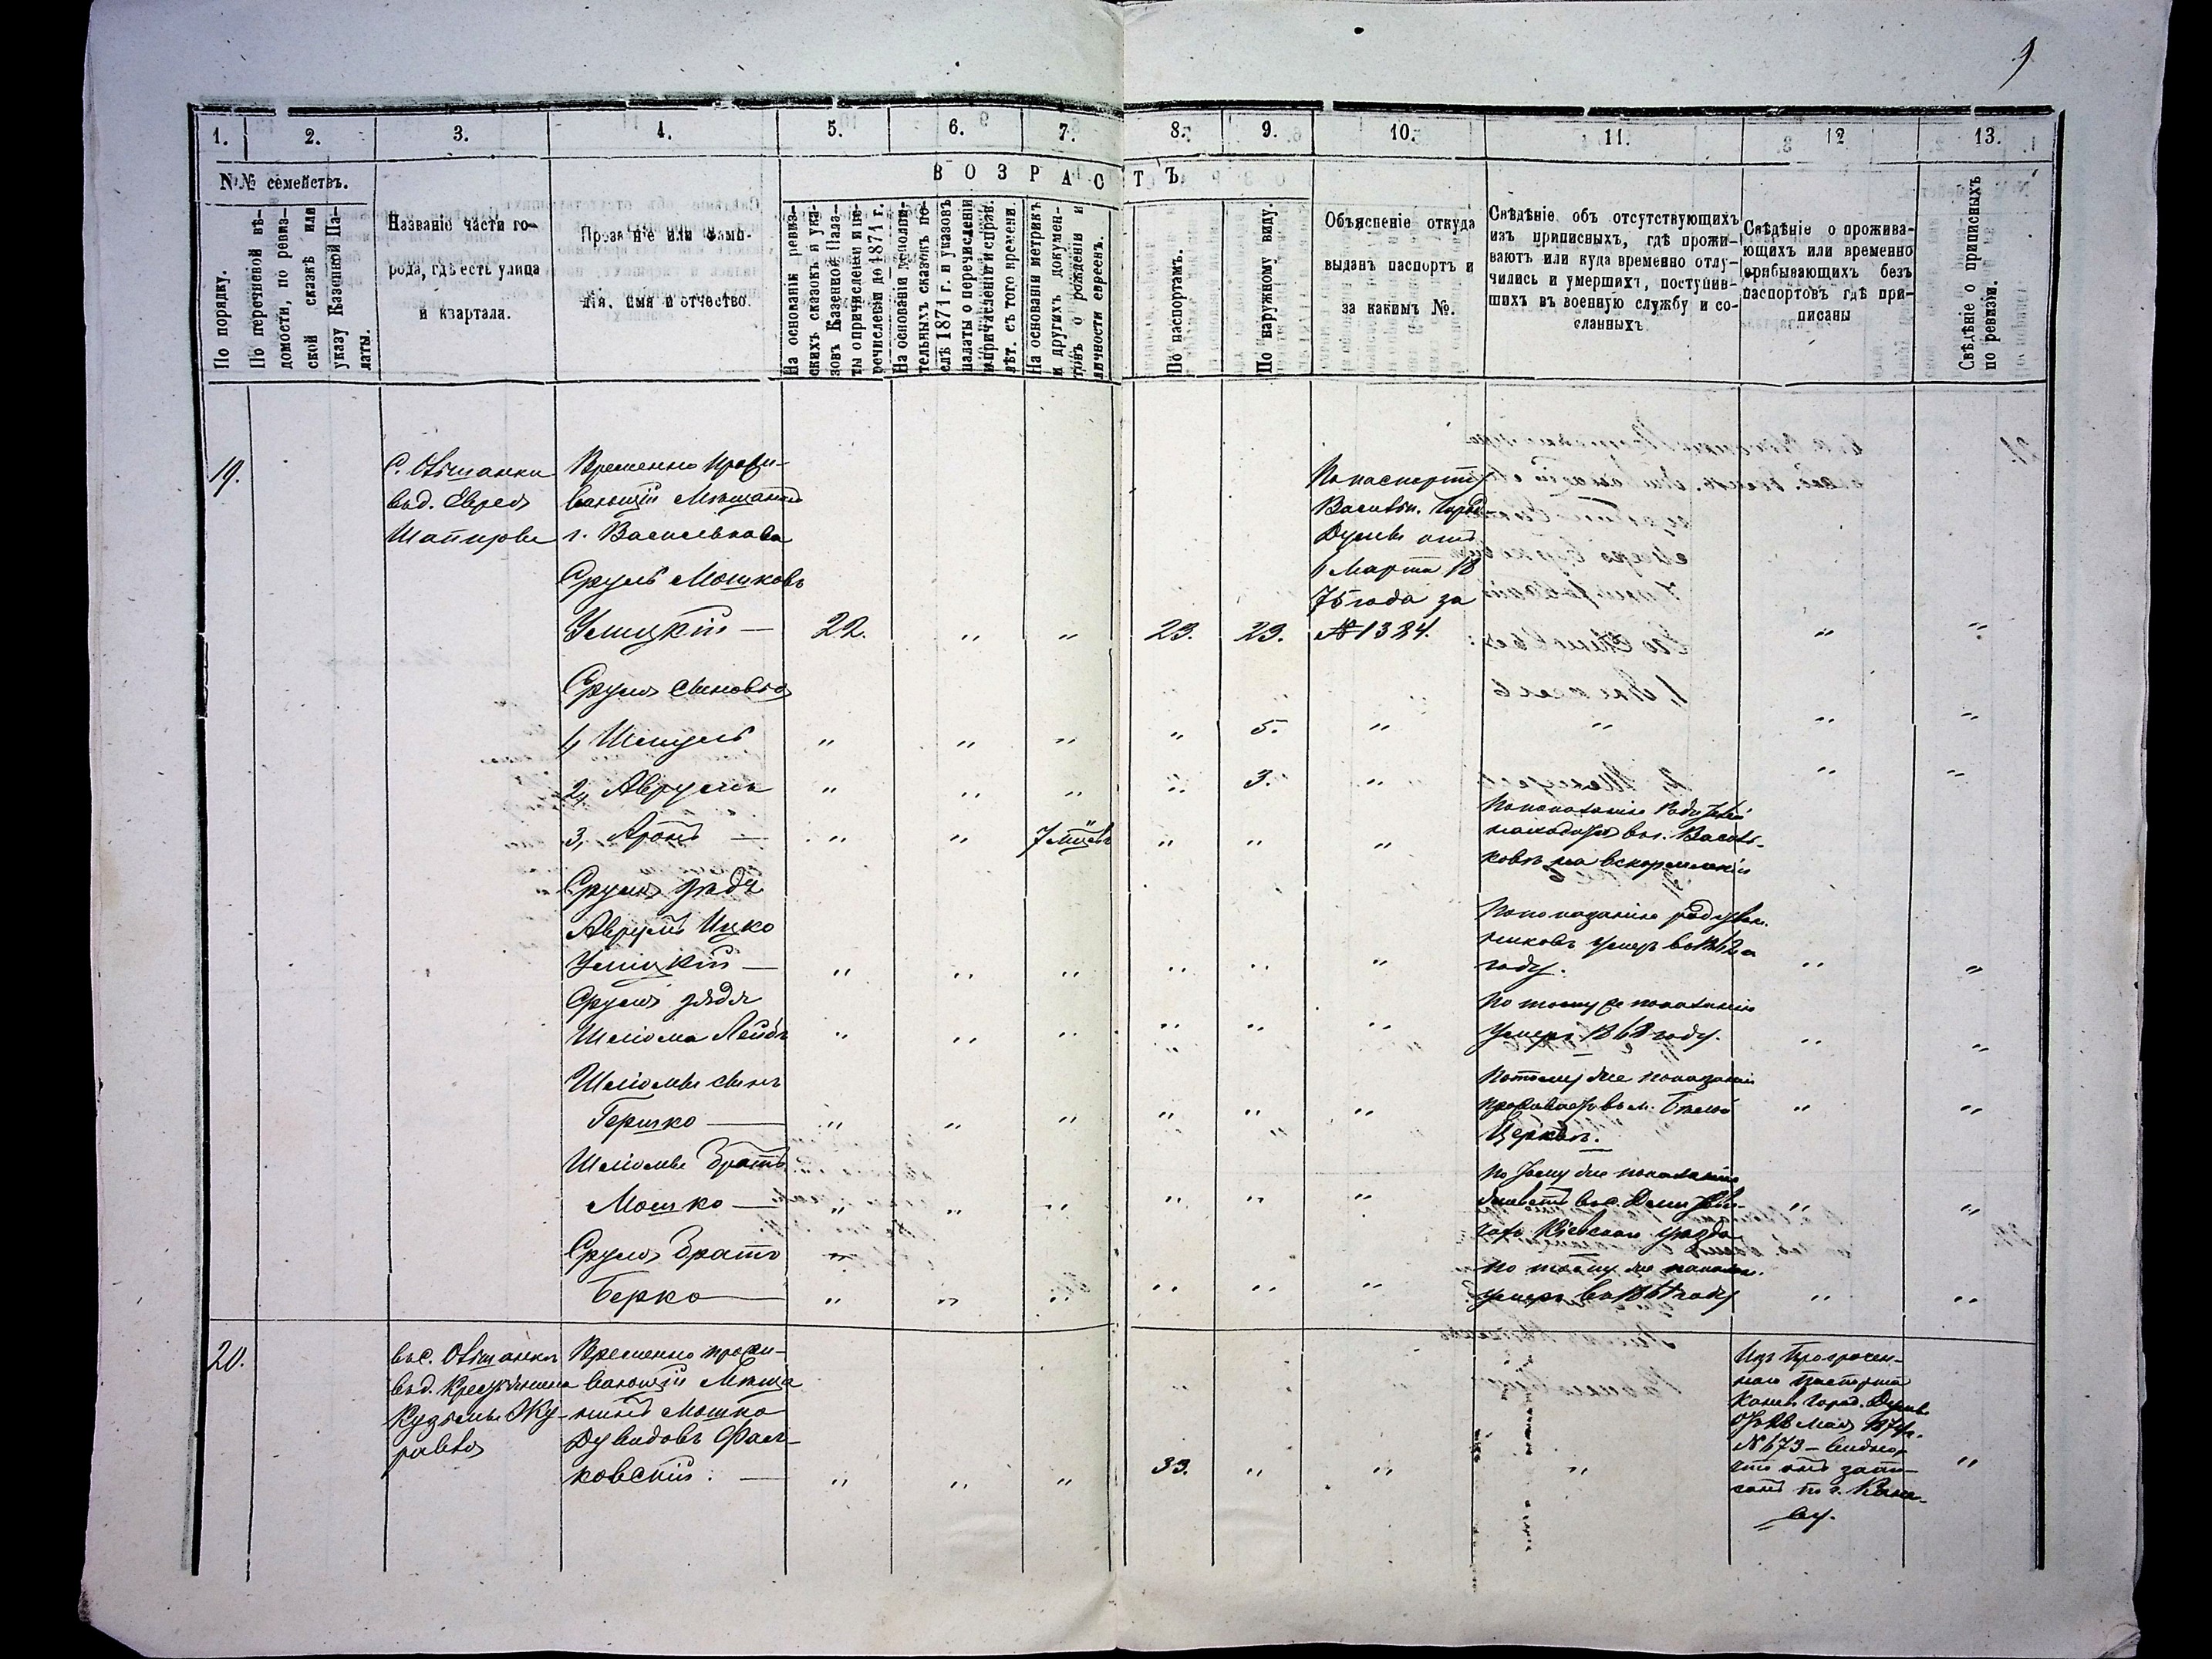 9
1. 2. 3. 4. 5. 6. 7. 8. 9. 10. 11. 12 13.
№№ семействъ.
ВОЗРАСТЪ.
По порядку.
По перечневой вѣ-
домости, по ревиз-
ской сказкѣ или
указу Казенной Па-
латы.
Названіе части го-
рода, гдѣ есть улица
и квартала.
Прозваніе или фами-
лія, имя и отчество.
На основаніи ревиз-
скихъ сказокъ и ука-
зовъ Казенной Пала-
ты о причисленіи и пе-
речисленіи до 1871 г.
На основаніи дополни-
тельныхъ сказокъ по-
слѣ 1871 г. и указовъ
палаты о перечисленіи
и причисленіи и справ.
лѣт. съ того времени.
На основаніи метрикъ
и другихъ докумен-
товъ о рожденіи и
личности евреевъ.
По паспортамъ.
По наружному виду.
Объясненіе откуда
выданъ паспортъ и
за какимъ №.
Свѣдѣніе объ отсутствующихъ
изъ приписныхъ, гдѣ прожи-
ваютъ или куда временно отлу-
чились и умершихъ, поступив-
шихъ въ военную службу и со-
сланныхъ
Свѣдѣніе о прожива-
ющихъ или временно
прибывающихъ безъ
паспортовъ гдѣ при-
писаны
Свѣдѣніе о приписныхъ
по ревизіи.
19.
С. Ольшанки
вд. Еврея
Шапиры
Временно прожи-
вающій Мѣщанинъ
г. Василькова
Сруль Мошковъ
Улицкій — 22. „ „ 23. 23.
По паспорту
Васильк. Город.
Думы отъ
6 Марта 18
75 года за
№ 1384. „ „
Сруля сыновья
1, Шмуль „ „ „ „ 5. „ „ „ „
2, Аврумъ „ „ „ „ 3. „ „ „
3, Аронъ — „ „ 7 мцевъ „ „ „
По показанію
находится въ г. Василь-
ковѣ на вскормленіи
Сруля дядя
Аврумъ Ицко
Улицкій — „ „ „ „ „ „
По показанію родствен.
никовъ умеръ въ 1862
году. „ „
Сруля дядя
Шліома Лейбъ „ „ „ „ „ „
По тому же показанію
умеръ 1868 году. „ „
Шліомы сынъ
Гершко — „ „ „ „ „ „
По тому же показанію
проживаетъ въ м. Бѣлой
Церкви. „ „
Шліомы братъ
Мошко — „ „ „ „ „ „
По тому же показанію
въ с.
Кіевскаго уѣзда „ „
Сруля братъ
Берко — „ „ „ „ „ „
По тому же показан.
умеръ въ году „ „
20.
въ с. Ольшанки
вд. Крестьянина
Кузьмы Жу-
равля
Временно прожи-
вающій Мѣща
нинъ Мошко
Дувидовъ Фаль-
ковскій. — „ „ „ 33. „ „ „
Изъ просрочен-
наго паспорта
Канев. Город. Думы
Мая 1874 г.
№ 673 — видно
что онъ запи-
санъ по г. Кане-
ву. „